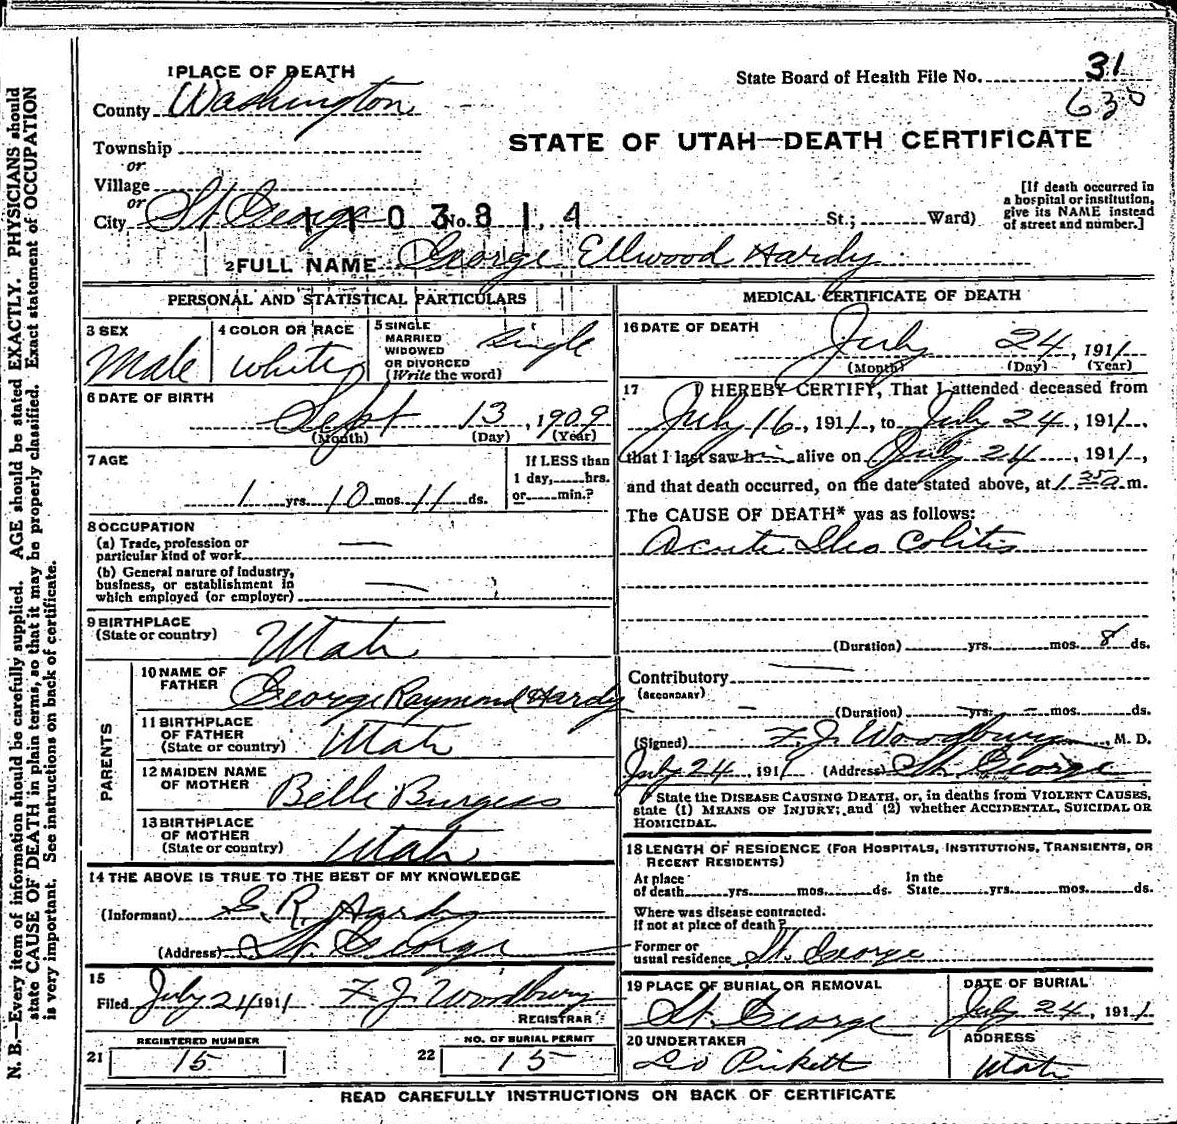 1 PLACE OF DEATH
State Board of Health File No. 31
County Washington
630
STATE OF UTAH—DEATH CERTIFICATE
Township
or
Village
or
City St George No. St.; Ward)
1103814
[If death occurred in
a hospital or institution,
give its NAME instead
of street and number.]
2 FULL NAME George Ellwood Hardy
PERSONAL AND STATISTICAL PARTICULARS
3 SEX
Male
4 COLOR OR RACE
White
5 SINGLE
MARRIED
WIDOWED
OR DIVORCED
(Write the word)
Single
6 DATE OF BIRTH
Sept 13, 1909
(Month) (Day) (Year)
7 AGE
1 yrs. 10 mos. 11 ds.
If LESS than
1 day, hrs.
or min.?
8 OCCUPATION
(a) Trade, profession or
particular kind of work —
(b) General nature of industry,
business, or establishment in
which employed (or employer) —
9 BIRTHPLACE
(State or country) Utah
PARENTS
10 NAME OF
FATHER George Raymond Hardy
11 BIRTHPLACE
OF FATHER
(State or country) Utah
12 MAIDEN NAME
OF MOTHER Belle Burgess
13 BIRTHPLACE
OF MOTHER
(State or country) Utah
14 THE ABOVE IS TRUE TO THE BEST OF MY KNOWLEDGE
(Informant) G. R. Hardy
(Address) St. George
15
Filed July 24 1911 F. J. Woodbury
REGISTRAR
21 REGISTERED NUMBER
15
22 NO. OF BURIAL PERMIT
15
MEDICAL CERTIFICATE OF DEATH
16 DATE OF DEATH
July 24, 1911
(Month) (Day) (Year)
17 I HEREBY CERTIFY, That I attended deceased from
July 16, 1911, to July 24, 1911,
that I last saw him alive on July 24, 1911,
and that death occurred, on the date stated above, at 1 35 a m.
The CAUSE OF DEATH* was as follows:
Acute Ileo Colitis
(Duration) yrs. mos. 8 ds.
Contributory —
(SECONDARY)
— (Duration) yrs. — mos. ds.
(Signed) F. J. Woodbury, M. D.
July 24, 1911 (Address) St. George
* State the DISEASE CAUSING DEATH, or, in deaths from VIOLENT CAUSES,
state (1) MEANS OF INJURY; and (2) whether ACCIDENTAL, SUICIDAL OR
HOMICIDAL.
18 LENGTH OF RESIDENCE (FOR HOSPITALS, INSTITUTIONS, TRANSIENTS, OR
RECENT RESIDENTS)
At place In the
of death yrs. mos. ds. State yrs. mos. ds.
Where was disease contracted.
If not at place of death?
Former or
usual residence St. George
19 PLACE OF BURIAL OR REMOVAL
St. George
DATE OF BURIAL
July 24, 1911
20 UNDERTAKER
Leo Pickett
ADDRESS
Utah
READ CAREFULLY INSTRUCTIONS ON BACK OF CERTIFICATE
N. B.—Every item of information should be carefully supplied. AGE should be stated EXACTLY. PHYSICIANS should
state CAUSE OF DEATH in plain terms, so that it may be properly classified. Exact statement of OCCUPATION
is very important. See instructions on back of certificate.